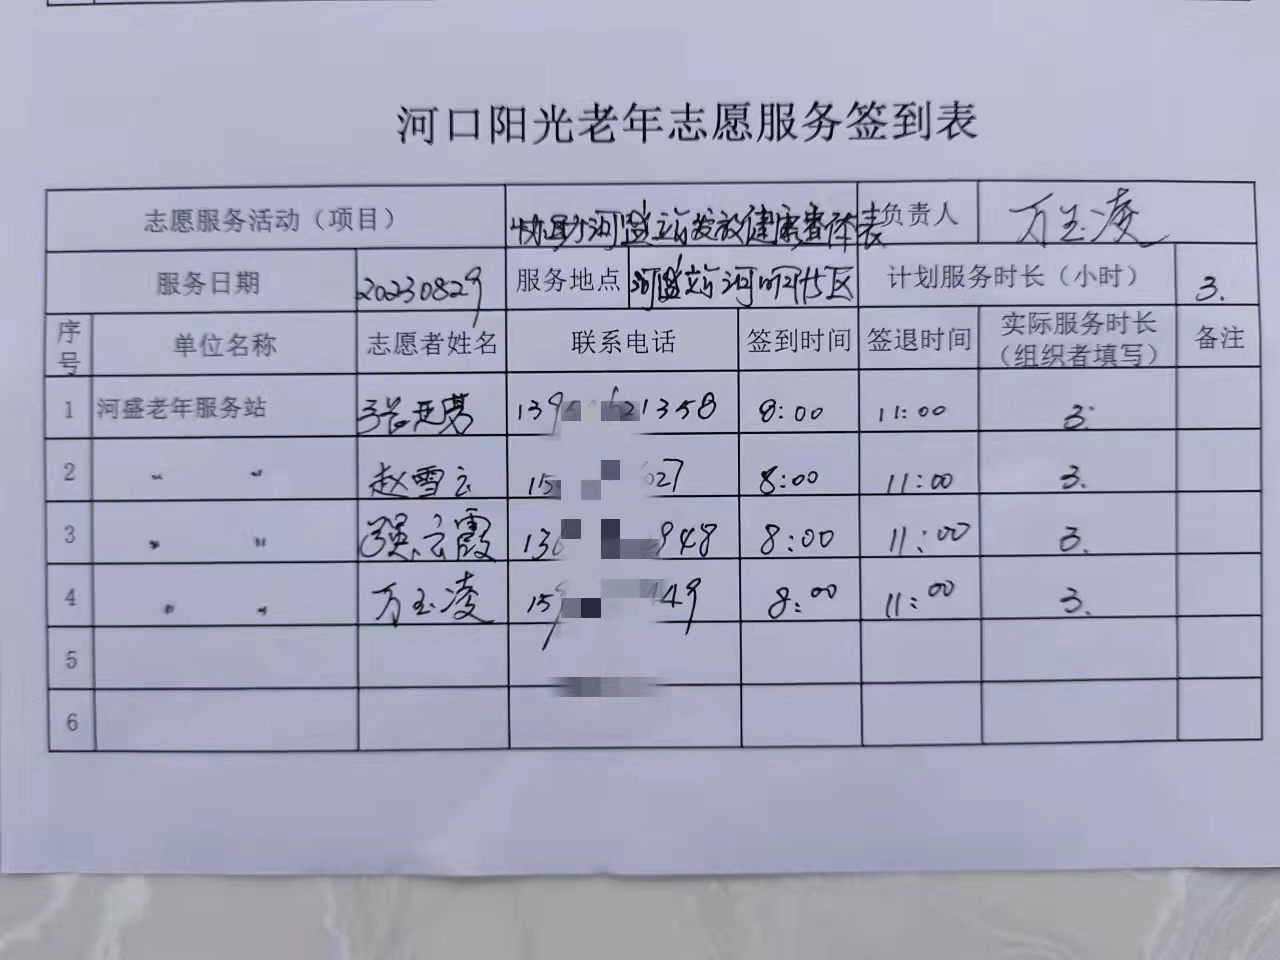 河口阳光老年志愿服务签到表
志愿服务活动（项目） 协助河盛站发放健康查体表 负责人 万玉凌
服务日期 20230829 服务地点 河盛站 河明社区 计划服务时长（小时） 3.
序号 单位名称 志愿者姓名 联系电话 签到时间 签退时间 实际服务时长（组织者填写） 备注
1 河盛老年服务站 139 21358 8:00 11:00 3.
2 〃 〃 赵雪云 15 627 8:00 11:00 3.
3 〃 〃 强云霞 13 948 8:00 11:00 3.
4 〃 〃 万玉凌 159 449 8:00 11:00 3.
5
6